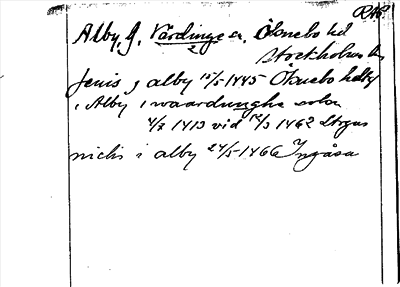 RAP
Alby, g, Vårdinge sn, Öknebo hd
Stockholms län
Jenis j alby 15/5 1445 Öknebo hdbg
i Alby i waardunghe sokn
4/7 1413 vid 12/3 1462 Strgn
nichi i alby 24/5 1466 Yngåsa